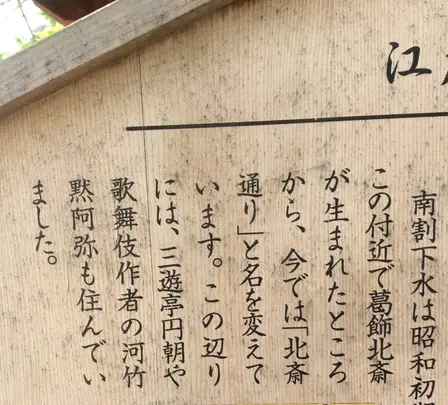 江
南割下水は昭和初
この付近で葛飾北斎
が生まれたところ
から、今では「北斎
通り」と名を変えて
います。この辺り
には、三遊亭円朝や
歌舞伎作者の河竹
黙阿弥も住んでい
ました。